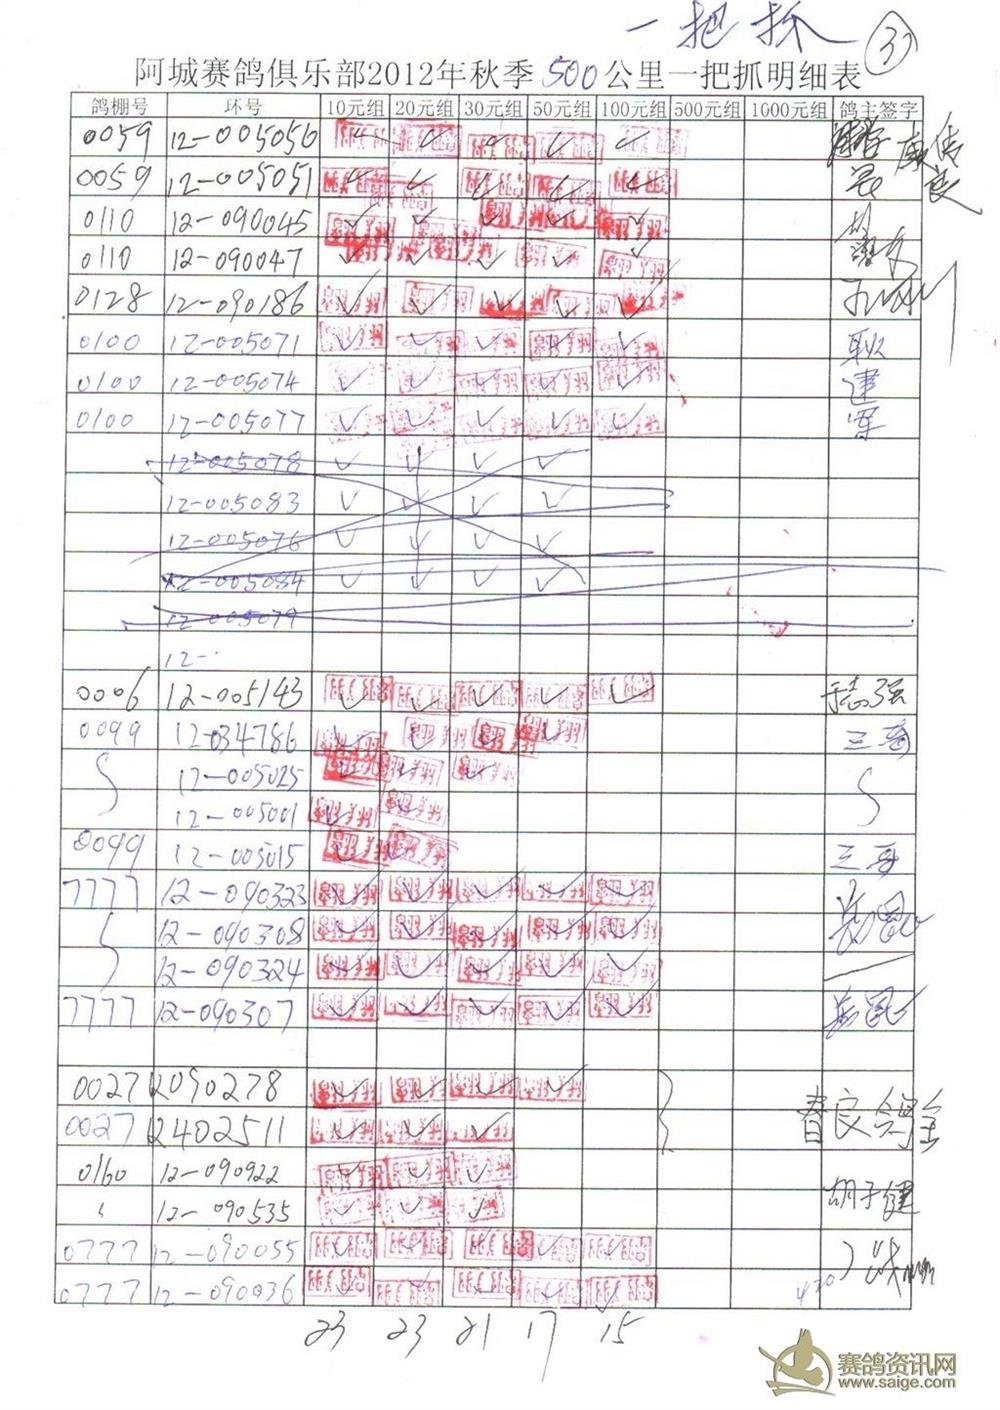 一把抓
3
阿城赛鸽俱乐部2012年秋季500公里一把抓明细表
鸽棚号 环号 10元组 20元组 30元组 50元组 100元组 500元组 1000元组 鸽主签字
0059 12-005050 ✓ ✓ ✓ ✓ ✓
0059 12-005051 ✓ ✓ ✓ ✓ ✓
0110 12-090045 ✓ ✓ ✓ ✓ ✓
0110 12-090047 ✓ ✓ ✓ ✓
0128 12-090186 ✓ ✓ ✓ ✓ ✓
0100 12-005071 ✓ ✓ ✓ ✓ ✓ 耿
0100 12-005074 ✓ ✓ ✓ ✓ ✓ 建
0100 12-005077 ✓ ✓ ✓ ✓ ✓ 军
12-005078 ✓ ✓ ✓ ✓
12-005083 ✓ ✓ ✓ ✓
12-005076 ✓ ✓ ✓ ✓
12-005084 ✓ ✓ ✓ ✓
12-005079
12-
0006 12-005143 ✓ ✓ ✓ ✓ ✓ 于志强
0099 12-034786 ✓ ✓ ✓ ✓ 三哥
12-005025 ✓ ✓ ✓
12-005001 ✓ ✓
0099 12-005015 ✓ ✓ 三哥
7777 12-090323 ✓ ✓ ✓ ✓ ✓
12-090308 ✓ ✓ ✓ ✓ ✓
12-090324 ✓ ✓ ✓ ✓ ✓
7777 12-090307 ✓ ✓ ✓ ✓ ✓
0027 12090278 ✓ ✓ ✓ ✓
0027 12402511 ✓ ✓ ✓ 春良鸽舍
0160 12-090922 ✓ ✓ ✓
〃 12-090535 ✓ ✓ ✓ 胡于健
0777 12-090055 ✓ ✓ ✓ ✓ ✓
0777 12-090036 ✓ ✓ ✓ ✓ ✓ 420
23 23 21 17 15
赛鸽资讯网
www.saige.com